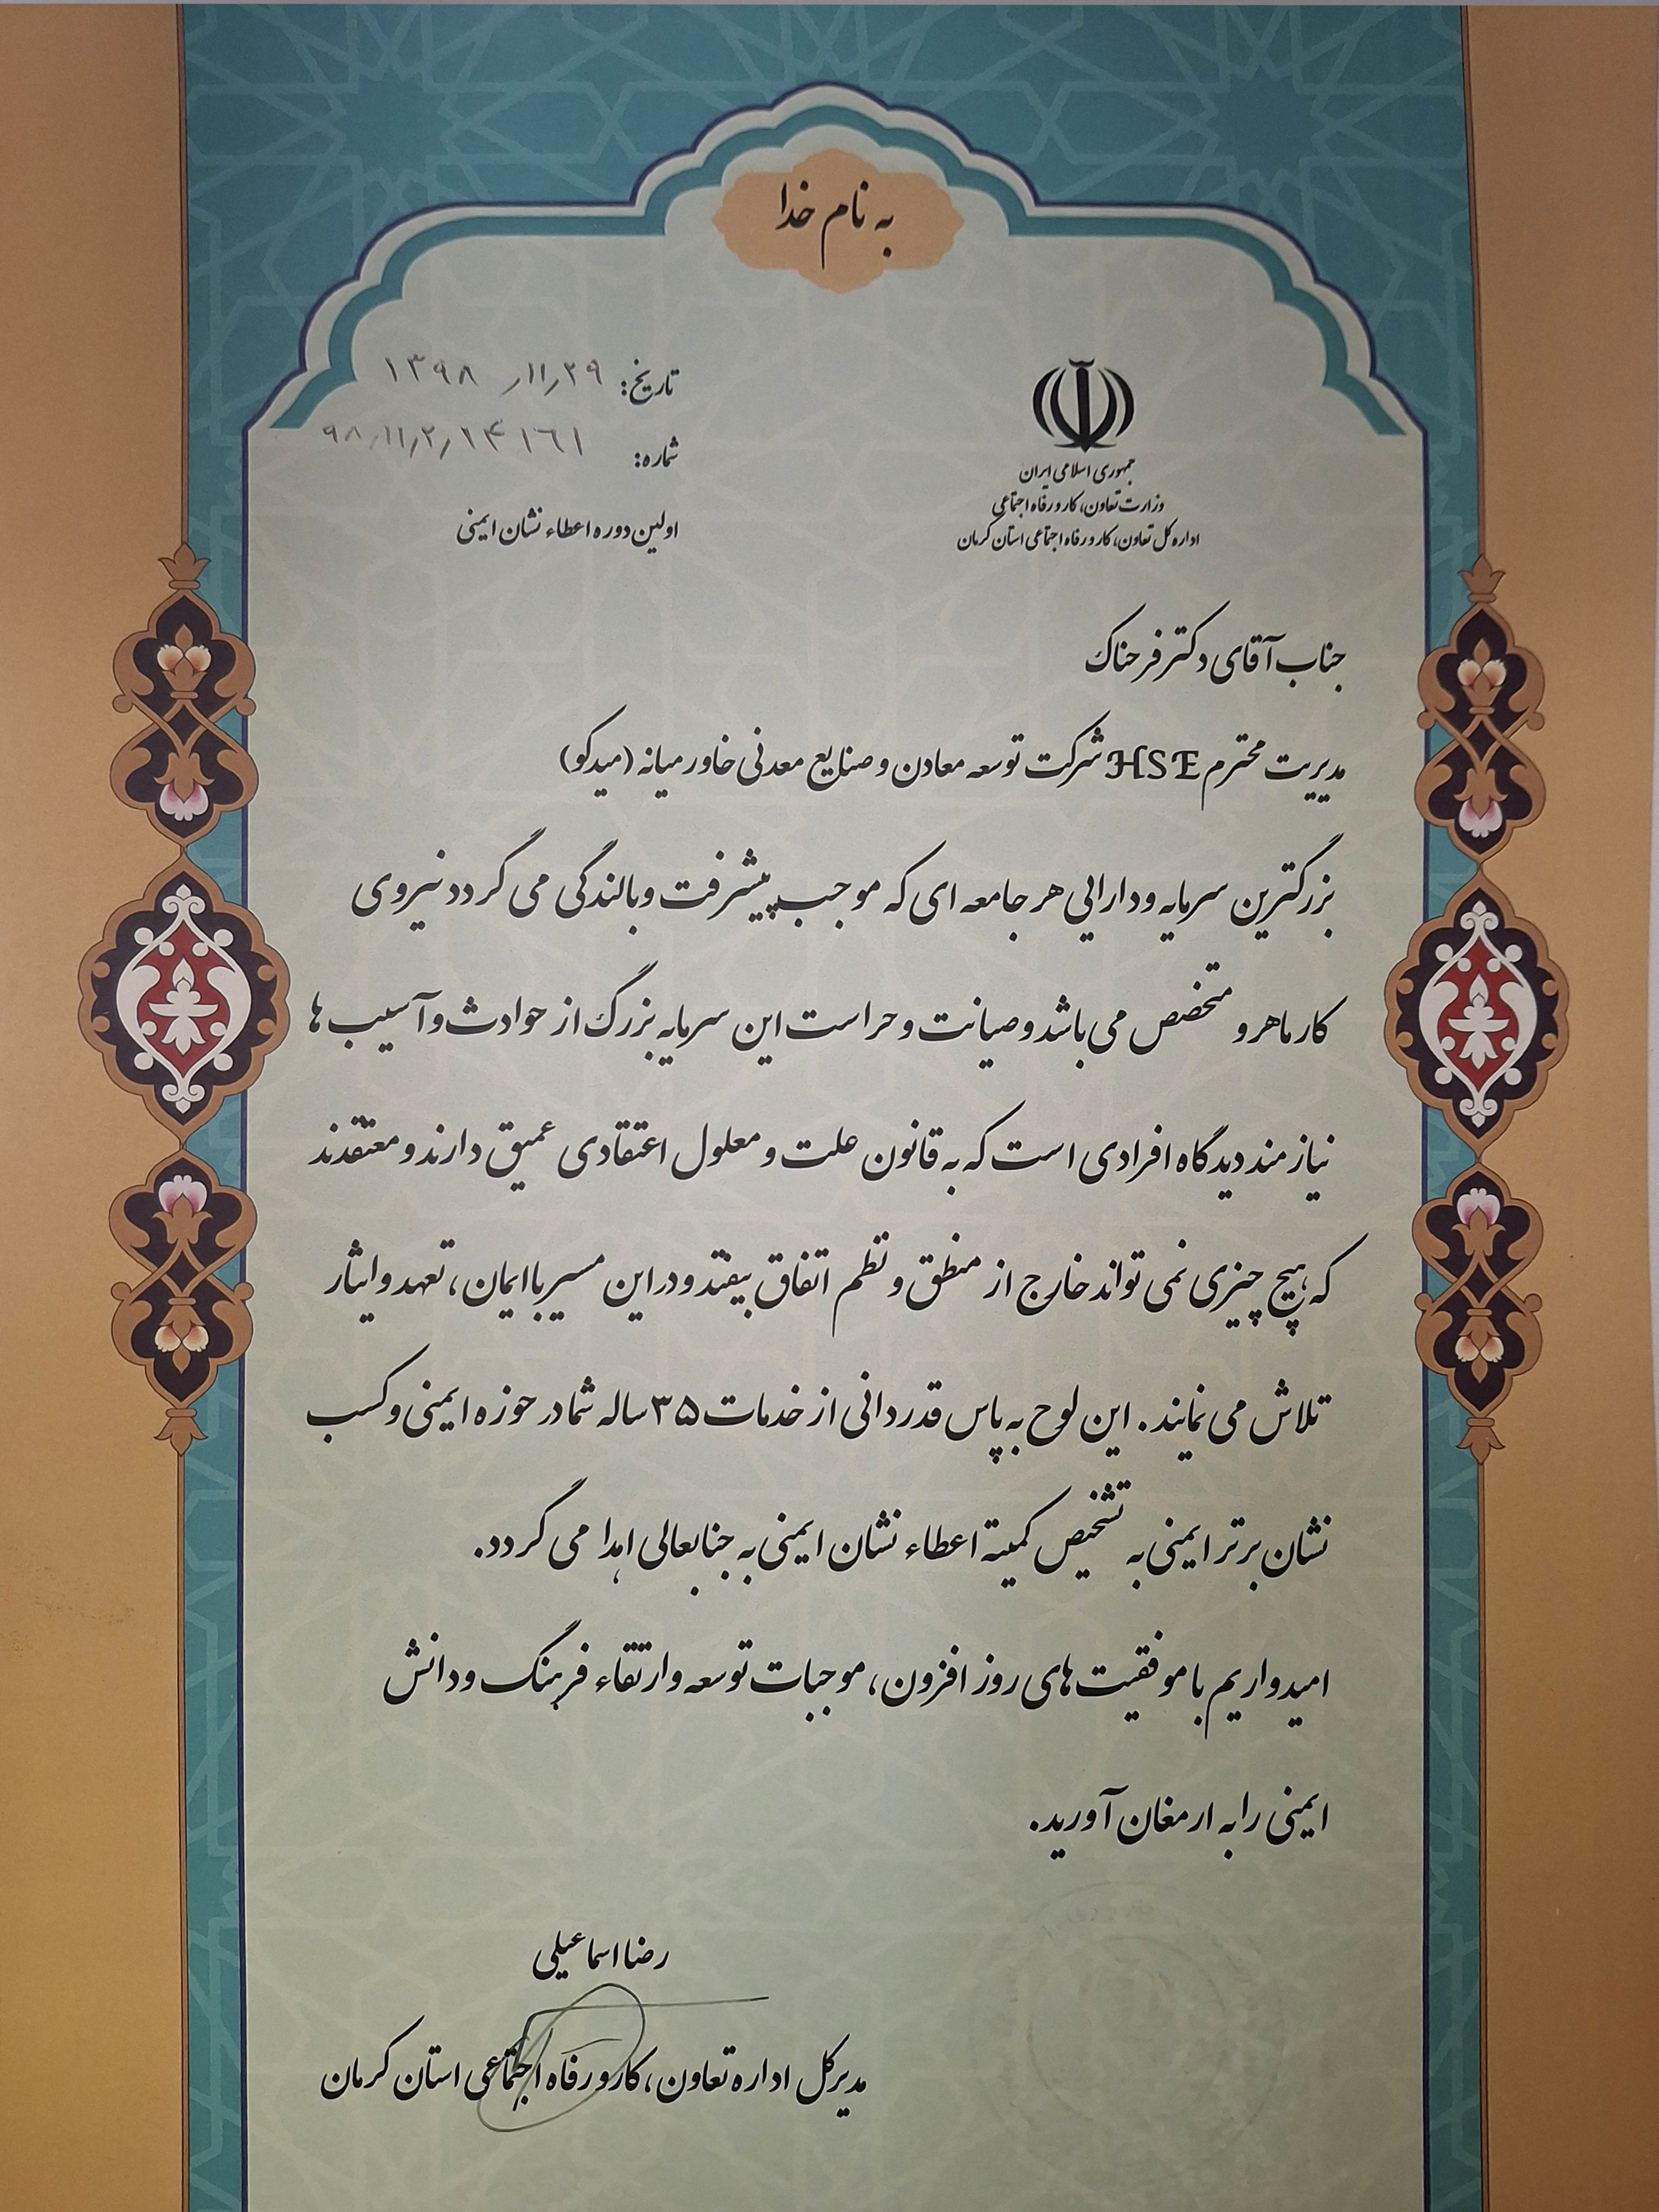 به نام خدا
جمهوری اسلامی ایران
وزارت تعاون، کار و رفاه اجتماعی
اداره کل تعاون، کار و رفاه اجتماعی استان کرمان
تاریخ: ۱۳۹۸/۱۱/۲۹
شماره: ۹۸/۱۱/۲/۲۴۱۶۱
اولین دوره اعطاء نشان ایمنی
جناب آقای دکتر فرحناک
مدیریت محترم HSE شرکت توسعه معادن و صنایع معدنی خاورمیانه (میدکو)
بزرگترین سرمایه و دارایی هر جامعه ای که موجب پیشرفت و بالندگی می گردد نیروی
کار ماهر و متخصص می باشد و صیانت و حراست این سرمایه بزرگ از حوادث و آسیب ها
نیازمند دیدگاه افرادی است که به قانون علت و معلول اعتقادی عمیق دارند و معتقدند
که هیچ چیزی نمی تواند خارج از منطق و نظم اتفاق بیفتد و در این مسیر با ایمان، تعهد و ایثار
تلاش می نمایند. این لوح به پاس قدردانی از خدمات ۳۵ ساله شما در حوزه ایمنی و کسب
نشان برتر ایمنی به تشخیص کمیته اعطاء نشان ایمنی به جنابعالی اهدا می گردد.
امیدواریم با موفقیت های روز افزون، موجبات توسعه و ارتقاء فرهنگ و دانش
ایمنی را به ارمغان آورید.
رضا اسماعیلی
مدیرکل اداره تعاون، کار و رفاه اجتماعی استان کرمان